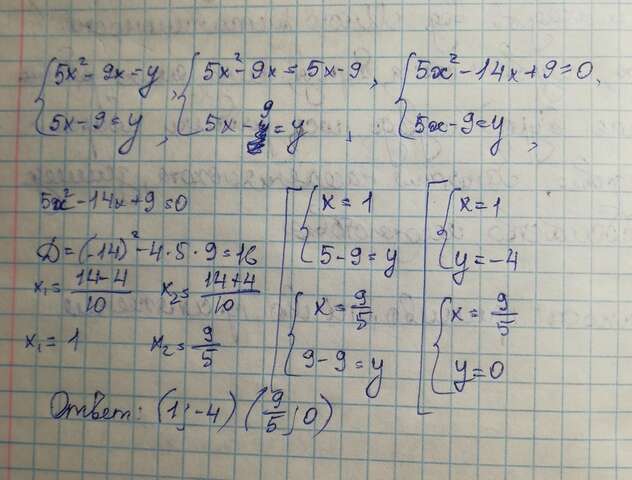 {5x² - 9x = y, {5x² - 9x = 5x - 9, {5x² - 14x + 9 = 0,
{5x - 9 = y, {5x - 9 = y, {5x - 9 = y,
5x² - 14x + 9 = 0
D = (-14)² - 4·5·9 = 16
x₁ = (14 - 4)/10 x₂ = (14 + 4)/10
x₁ = 1 x₂ = 9/5
[{x = 1
{5 - 9 = y
{x = 9/5
{9 - 9 = y
[{x = 1
{y = -4
{x = 9/5
{y = 0
Ответ: (1; -4) (9/5; 0)